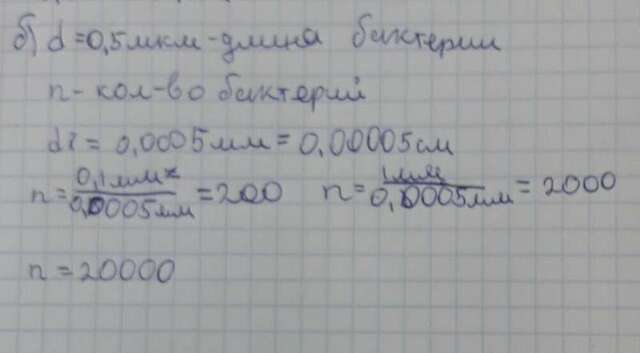 б) d = 0,5 мкм - длина бактерии
n - кол-во бактерий
d = 0,0005 мм = 0,00005 см
n = 0,1 мм / 0,0005 мм = 200 n = 1 мм / 0,0005 мм = 2000
n = 20000